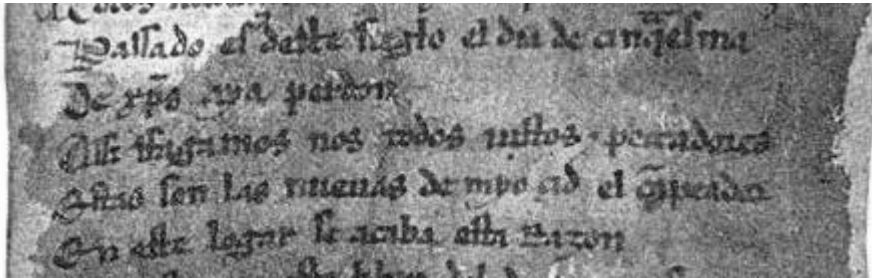 Passado es deste sieglo el dia de cinq̃esma
De xp̃s aya perdon
Assi ffagamos nos todos iustos ⁊ peccadores
Estas son las nueuas de myo çid el canpeador
En este logar se acaba esta Razon